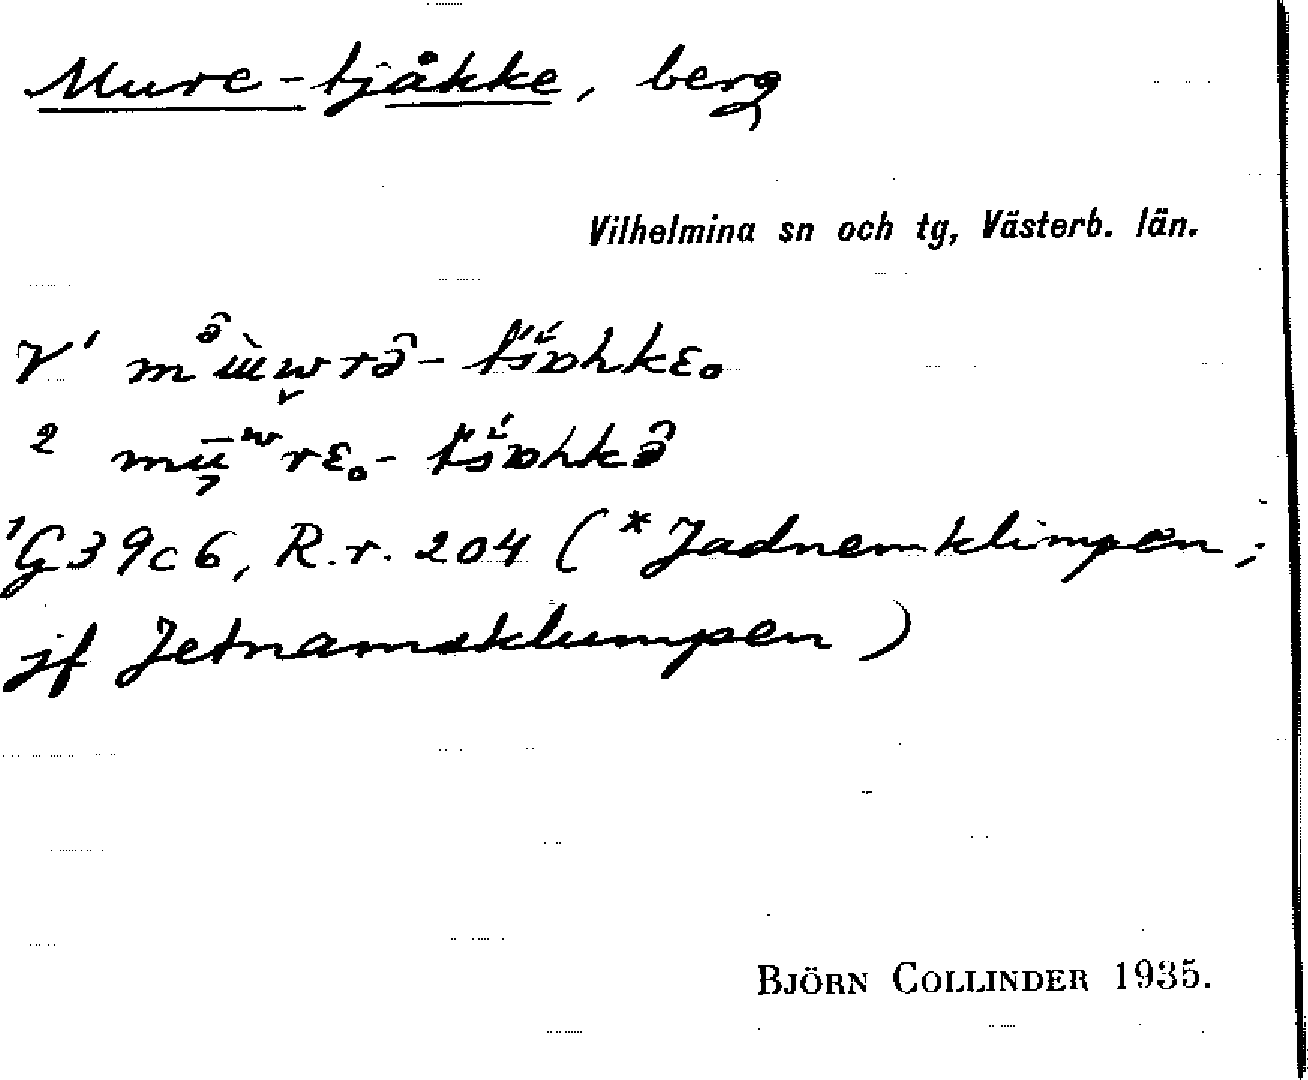 Mure-tjåkke, berg
Vilhelmina sn och tg, Västerb. län.
V¹
2
¹G39c6, R.r. 204 (*Jadnemklimpen;
jf Jetnamsklumpen)
BJÖRN COLLINDER 1935.